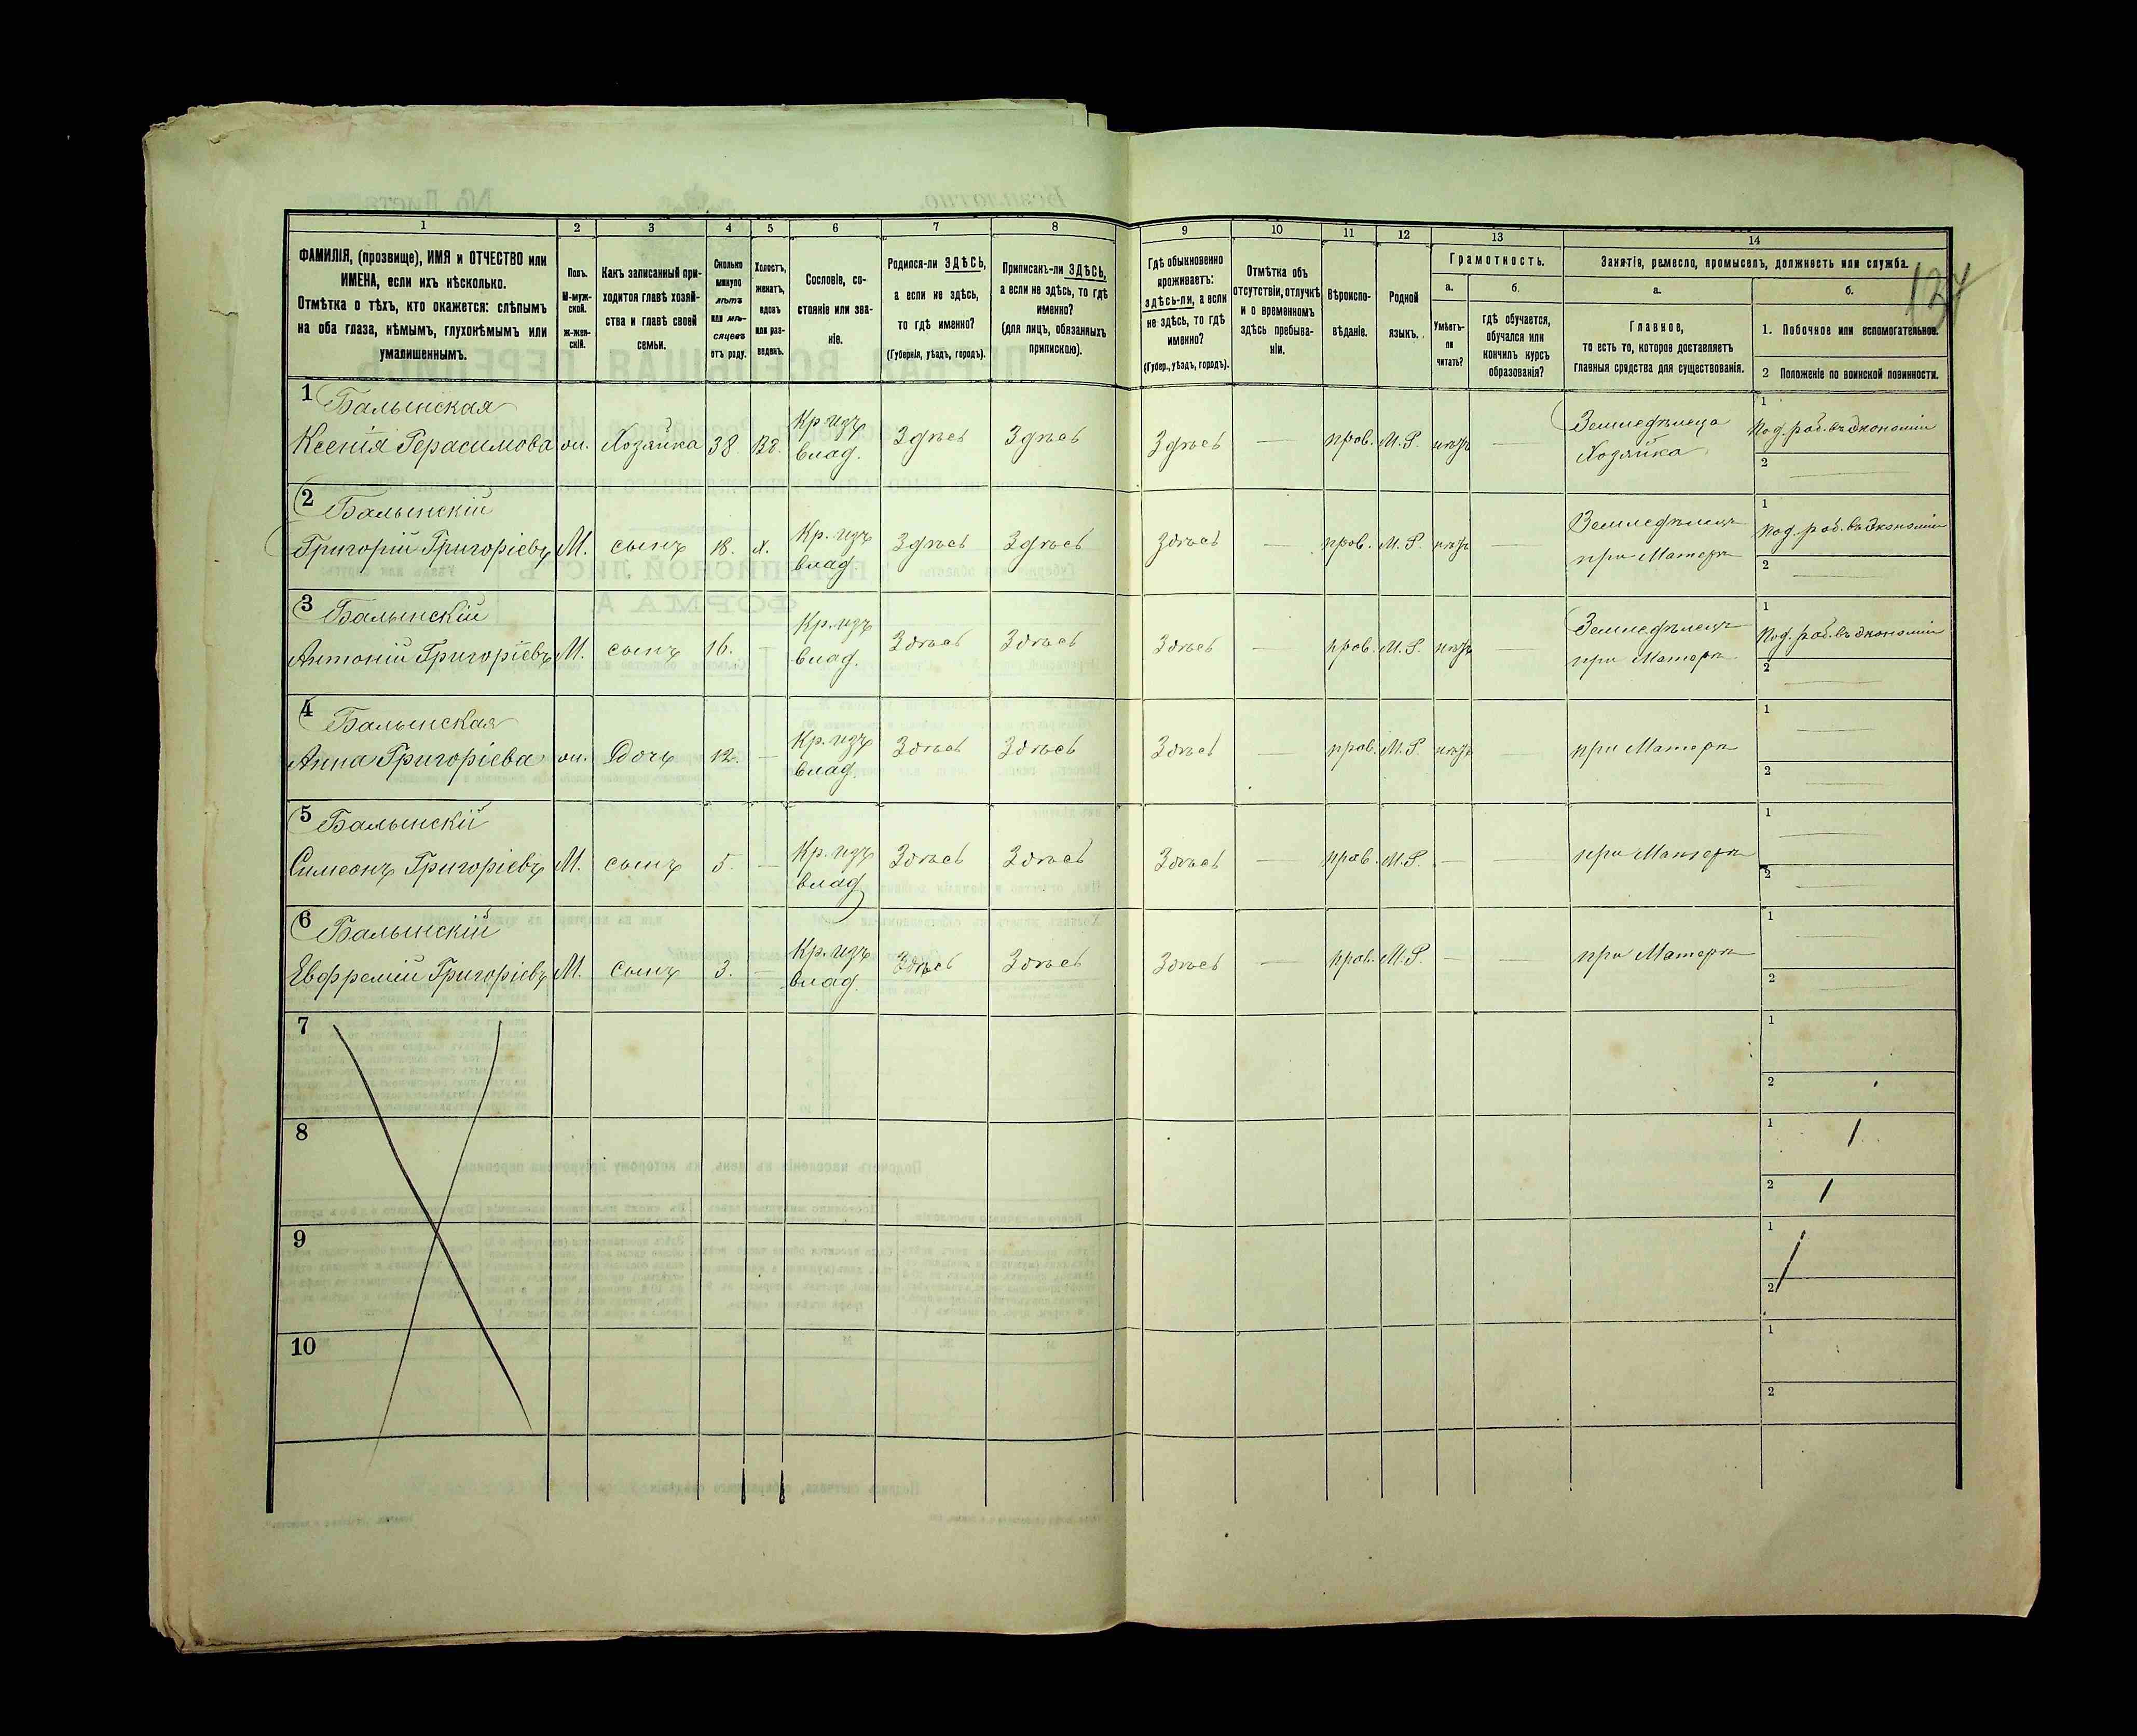 134
1 2 3 4 5 6 7 8 9 10 11 12 13 14
ФАМИЛІЯ, (прозвище), ИМЯ и ОТЧЕСТВО или
ИМЕНА, если ихъ нѣсколько.
Отмѣтка о тѣхъ, кто окажется: слѣпымъ
на оба глаза, нѣмымъ, глухонѣмымъ или
умалишеннымъ.
Полъ.
М-муж-
ской.
Ж-жен-
скій.
Какъ записанный при-
ходится главѣ хозяй-
ства и главѣ своей
семьи.
Сколько
минуло
лѣтъ
или мѣ-
сяцевъ
отъ роду.
Холостъ,
женатъ,
вдовъ
или раз-
веденъ.
Сословіе, со-
стояніе или зва-
ніе.
Родился-ли ЗДѢСЬ,
а если не здѣсь,
то гдѣ именно?
(Губернія, уѣздъ, городъ).
Приписанъ-ли ЗДѢСЬ,
а если не здѣсь, то гдѣ
именно?
(для лицъ, обязанныхъ
припискою).
Гдѣ обыкновенно
проживаетъ:
здѣсь-ли, а если
не здѣсь, то гдѣ
именно?
(Губер., уѣздъ, городъ).
Отмѣтка объ
отсутствіи, отлучкѣ
и о временномъ
здѣсь пребыва-
ніи.
Вѣроиспо-
вѣданіе.
Родной
языкъ.
Грамотность.
а.
Умѣетъ-
ли
читать?
б.
гдѣ обучается,
обучался или
кончилъ курсъ
образованія?
Занятіе, ремесло, промыселъ, должность или служба.
а.
Главное,
то есть то, которое доставляетъ
главныя средства для существованія.
б.
1. Побочное или вспомогательное.
2 Положеніе по воинской повинности.
1 Балынская
Ксенія Герасимова ж. Хозяйка 38. Вд. Кр. изъ влад. Здѣсь Здѣсь Здѣсь — прав. М.Р. нѣтъ — Земледѣлица Хозяйка 1 Под. раб. въ экономіи 2 —
2 Балынскій
Григорій Григоріевъ М. сынъ 18. х. Кр. изъ влад. Здѣсь Здѣсь Здѣсь — прав. М.Р. нѣтъ — Земледѣлецъ при Матери 1 Под. раб. въ экономіи 2 —
3 Балынскій
Антоній Григоріевъ М. сынъ 16. — Кр. изъ влад. Здѣсь Здѣсь Здѣсь — прав. М.Р. нѣтъ — Земледѣлецъ при Матери 1 Под. раб. въ экономіи 2 —
4 Балынская
Анна Григоріева ж. Дочь 12. — Кр. изъ влад. Здѣсь Здѣсь Здѣсь — прав. М.Р. нѣтъ — при Матери 1 — 2 —
5 Балынскій
Симеонъ Григоріевъ М. сынъ 5. — Кр. изъ влад. Здѣсь Здѣсь Здѣсь — прав. М.Р. — — при Матери 1 — 2 —
6 Балынскій
Евфремій Григоріевъ М. сынъ 3. — Кр. изъ влад. Здѣсь Здѣсь Здѣсь — прав. М.Р. — — при Матери 1 — 2 —
7 1 2
8 1 2
9 1 2
10 1 2